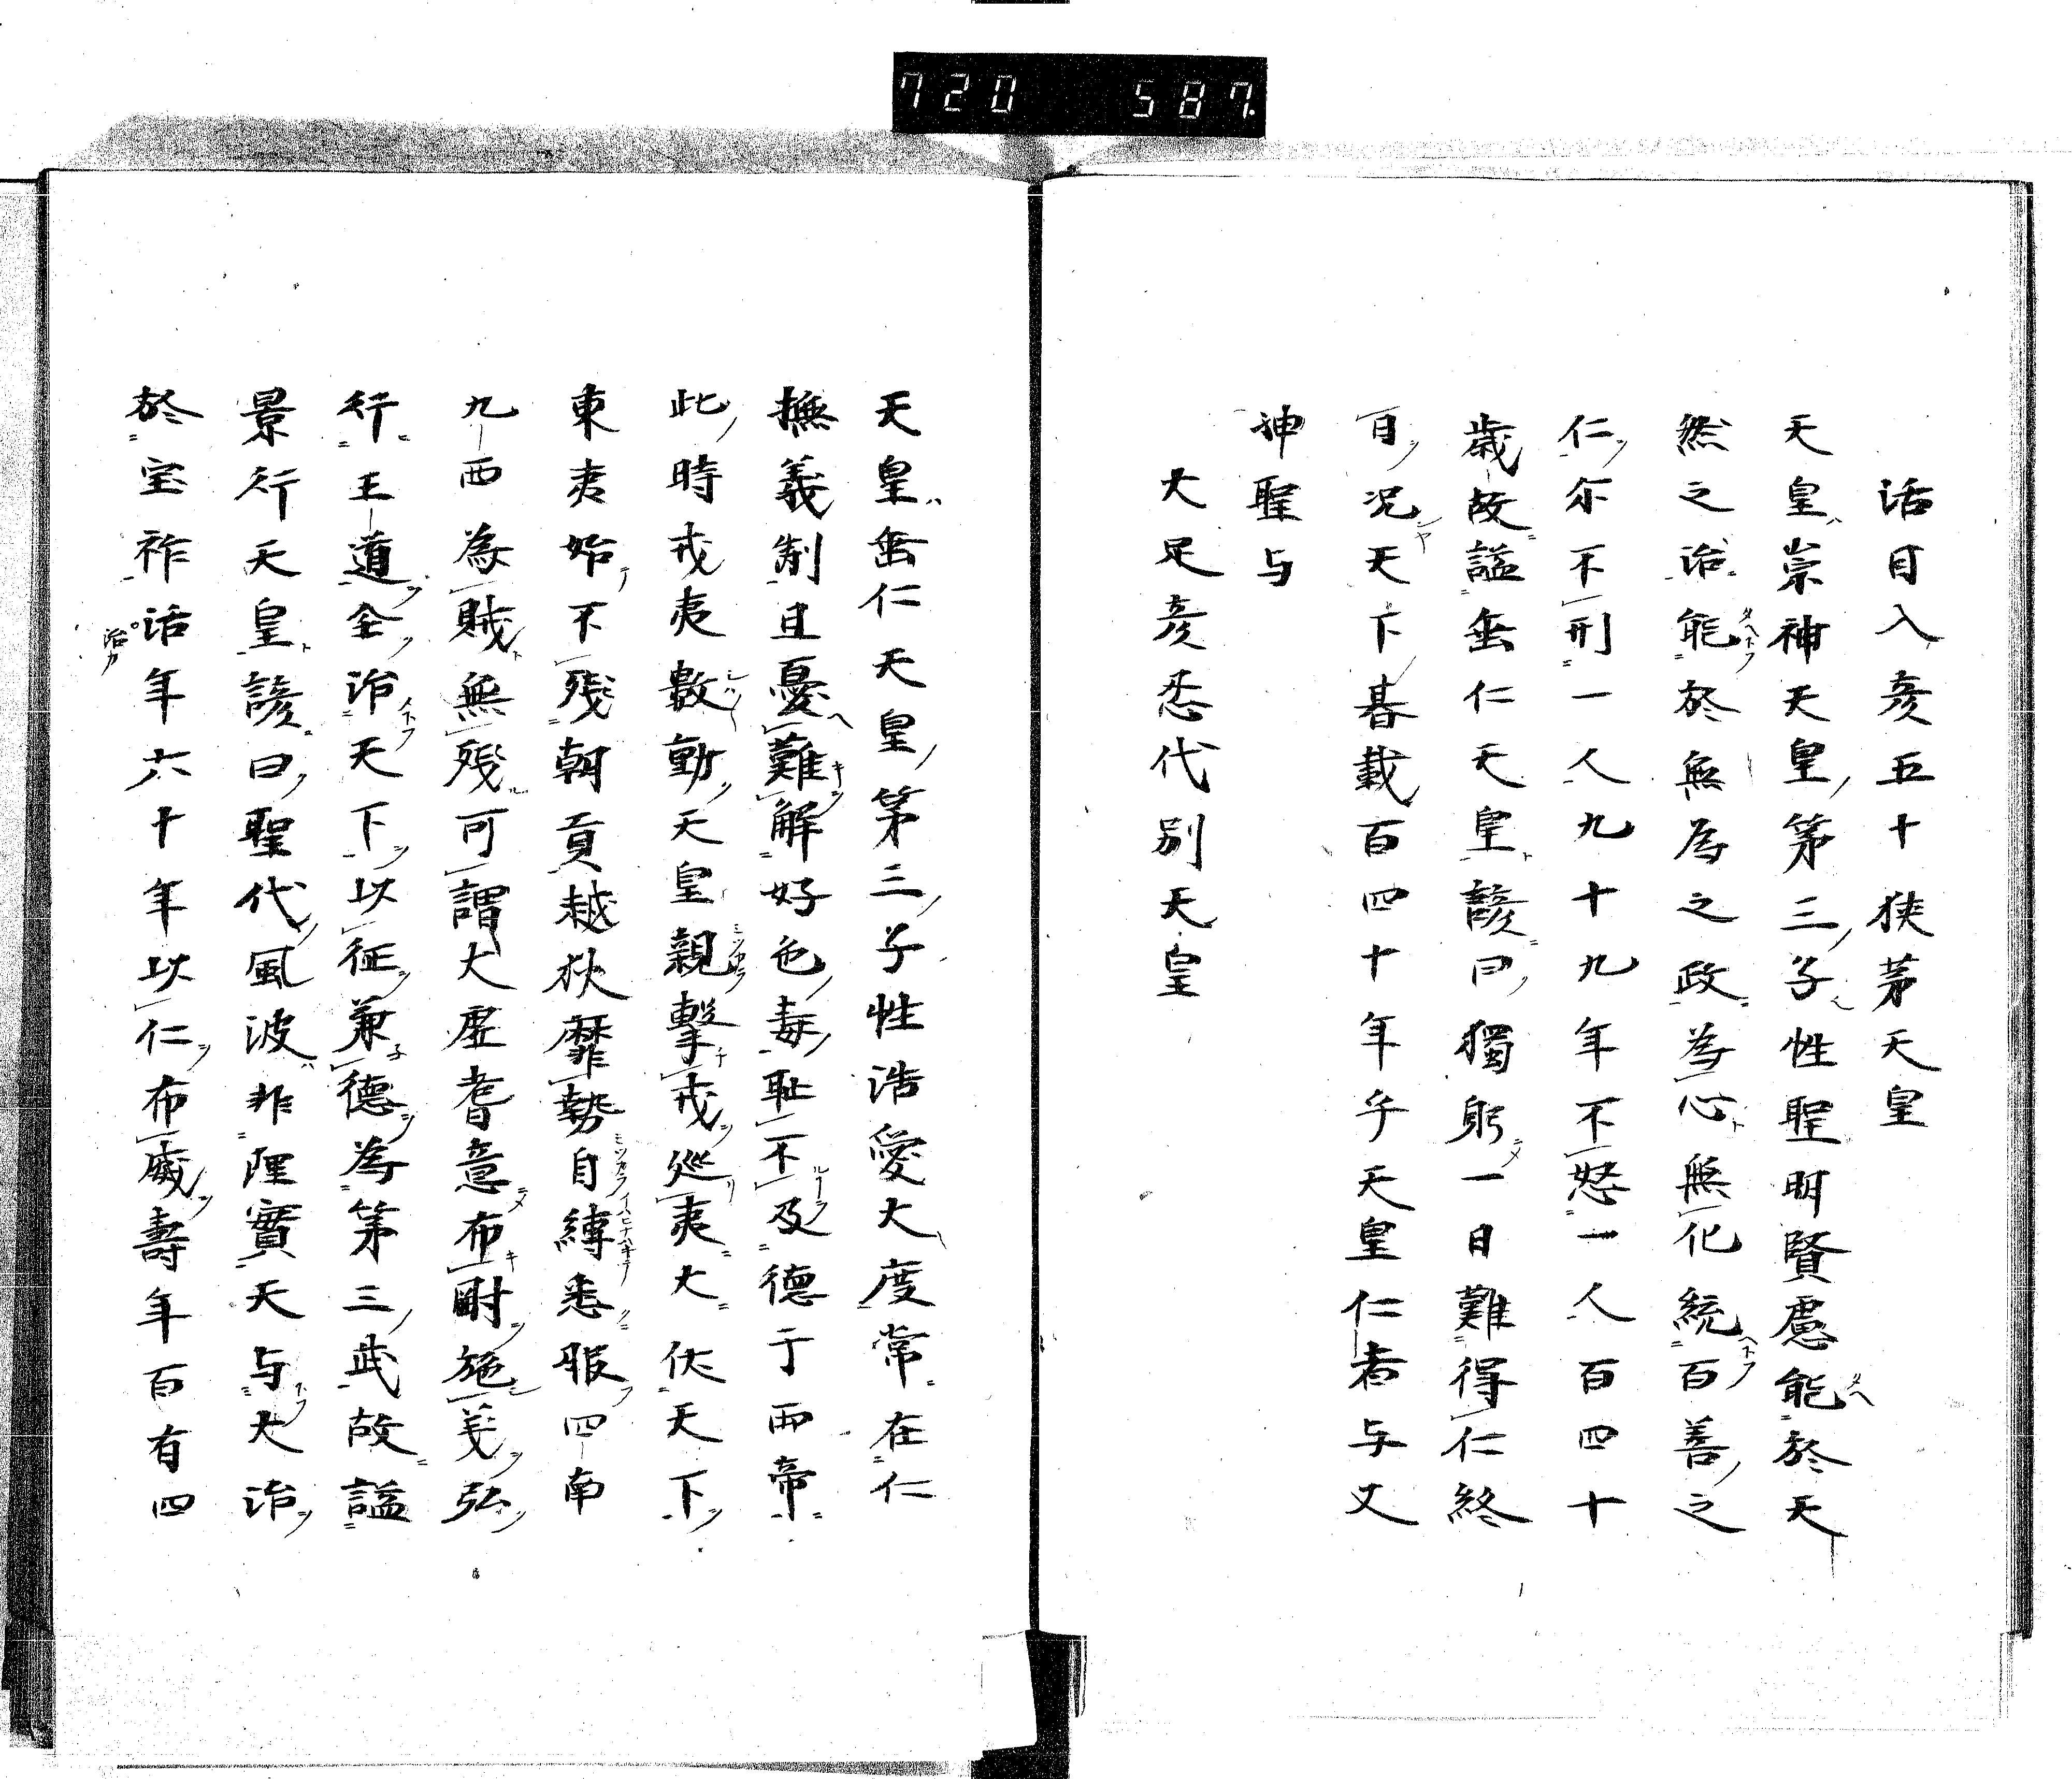 720 587
活目入彦五十狭茅天皇
天皇崇神天皇第三子性聖明賢慮能於天
然之治能於無為之政為心無化統百善之
仁尓不刑一人九十九年不怒一人百四十
歳故謚垂仁天皇諺曰獨躬一日難得仁終
百况天下暮載百四十年乎天皇仁者与丈
神聖与
大足彦忍代別天皇
天皇垂仁天皇第三子性浩愛大度常在仁
撫義制且憂難解好色毒恥不及德于両帝
此時戎夷數動天皇親撃戎巡夷大伏天下
東夷始不残朝貢越狄靡勢自縛悉服四南
九西為賊無残可謂大虚耆意布財施美弘
行王道全治天下以征兼德為第三武故謚
景行天皇諺曰聖代風波非理實天与大治
於宝祚活年六十年以仁布威壽年百有四